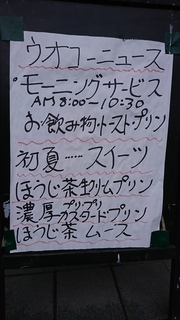 ウオコーニュース
°モーニングサービス
AM8:00〜10:30
お飲み物・トースト・プリン
初夏……スイーツ
ほうじ茶生クリームプリン
濃厚プリプリカスタードプリン
ほうじ茶 ムース